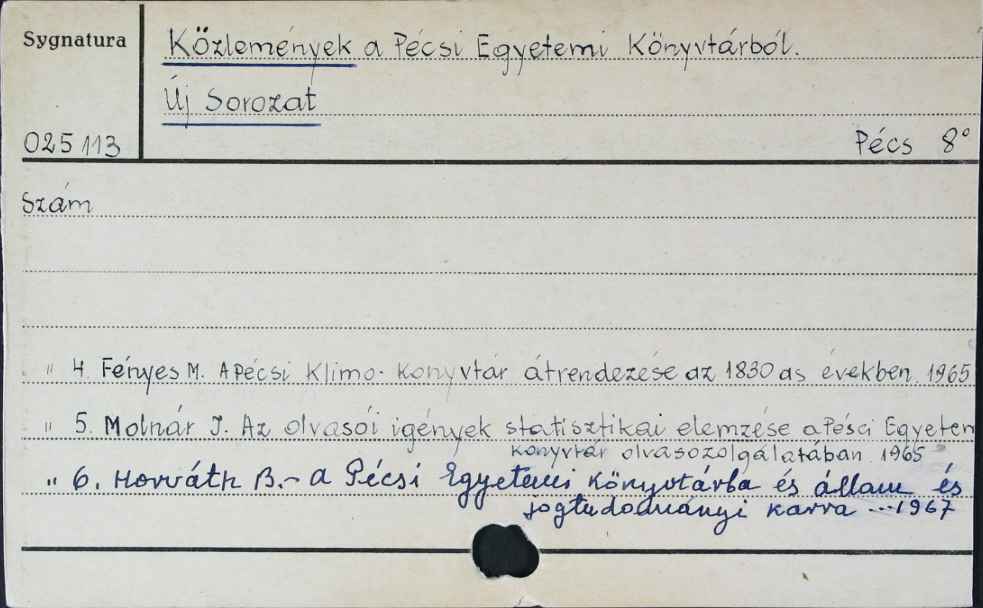 Sygnatura
Közlemények a Pécsi Egyetemi Könyvtárból.
Új Sorozat
025113
Pécs 8°
Szám
" 4. Fényes M. A Pécsi Klimo-Könyvtár átrendezése az 1830 as években. 1965
" 5. Molnár J. Az olvasói igények statisztikai elemzése a Pésci Egyetem
Könyvtár olvasozolgálatában. 1965
" 6. Horváth B. - A Pécsi Egyetemi Könyvtárba és állam és
jogtudományi karra ... 1967